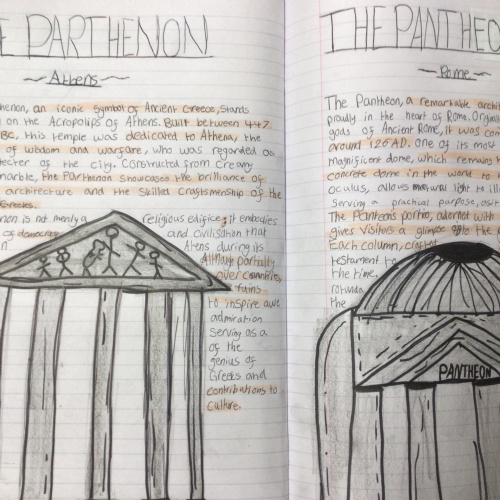 E PARTHENON
Athens
henon, an iconic symbol of Ancient Greece, stands
on the Acropolips of Athens. Built between 447
BC, this temple was dedicated to Athena, the
of wisdom and warfare, who was regarded as
tecter of the city. Constructed from creamy
marble, the Parthenon showcases the brilliance of
architecture and the skilled craftsmenship of the
Greeks.
non is not merely a religious edifice; it embodies
of democracy and civilisation that
Athens during its
Although partially
over centuries,
ruins
to inspire awe
admiration
serving as a
of the
genius of
Greeks and
contributions to
culture.
THE PANTHEO
Rome
The Pantheon, a remarkable archi
proudly in the heart of Rome. Originall
gods of Ancient Rome, it was con
around 126 AD. One of its most
magnificent dome, which remains th
concrete dome in the world to
oculus, allows natural light to ill
serving a practical purpose, as it
The Panteon's portico, adorned with
gives visitors a glimpse into the
Each column, craft
testament to
the time.
rotunda
the
PANTHEON